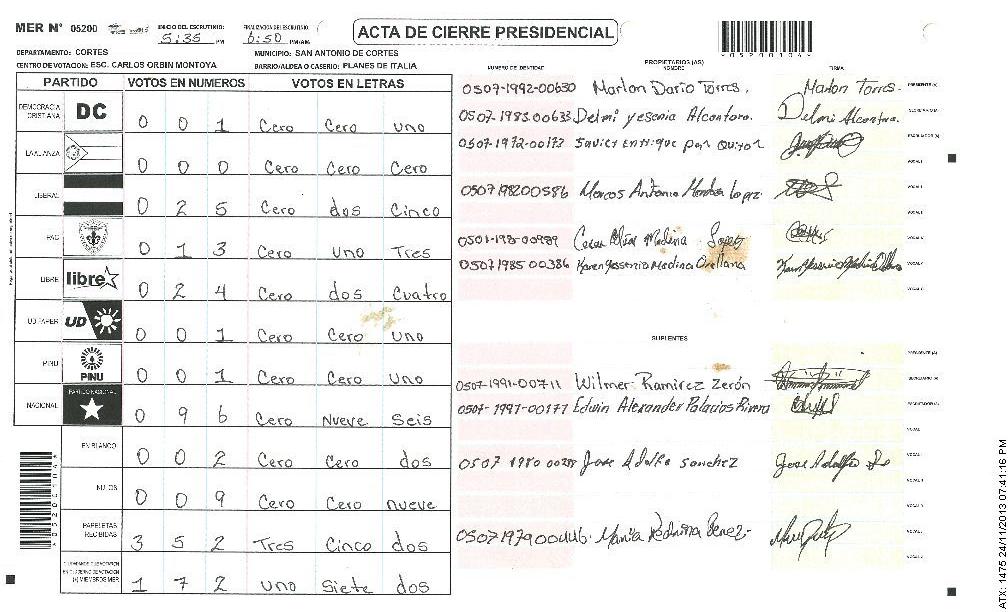 MER N° 05200 INICIO DEL ESCRUTINIO: 5:35 PM FINALIZACION DEL ESCRUTINIO: 6:50 PM/AM
ACTA DE CIERRE PRESIDENCIAL
DEPARTAMENTO: CORTES MUNICIPIO: SAN ANTONIO DE CORTES
CENTRO DE VOTACION: ESC. CARLOS ORBIN MONTOYA BARRIO/ALDEA O CASERIO: PLANES DE ITALIA
PARTIDO VOTOS EN NUMEROS VOTOS EN LETRAS
DEMOCRACIA CRISTIANA DC 0 0 1 Cero Cero uno
LA ALIANZA 0 0 0 Cero Cero Cero
LIBERAL 0 2 5 Cero dos Cinco
PAC 0 1 3 Cero Uno Tres
LIBRE libre 0 2 4 Cero dos Cuatro
UD FAPER UD 0 0 1 Cero Cero Uno
PINU PINU 0 0 1 Cero Cero Uno
NACIONAL PARTIDO NACIONAL 0 9 6 Cero Nueve Seis
EN BLANCO 0 0 2 Cero Cero dos
NULOS 0 0 9 Cero Cero nueve
PAPELETAS RECIBIDAS 3 5 2 Tres Cinco dos
1 7 2 uno Siete dos
NUMERO DE IDENTIDAD PROPIETARIOS (AS) NOMBRE FIRMA
0507-1992-00630 Marlon Dario Torres. Marlon Torres.
0507-1983-00633 Delmi yesenia Alcantara. Delmi Alcantara.
0507-1972-00172
0507198200586 Marcos Antonio
Medina Lopez
0507198500386 Karen Yessenia Medina Orellana
SUPLENTES
0507-1991-00711 Wilmer Ramirez Zerón
0507-1997-00177 Edwin Alexander Palacios Rivera
Jose Adolfo Sanchez
052001049
ATX: 1475 24/11/2013 07:41:16 PM